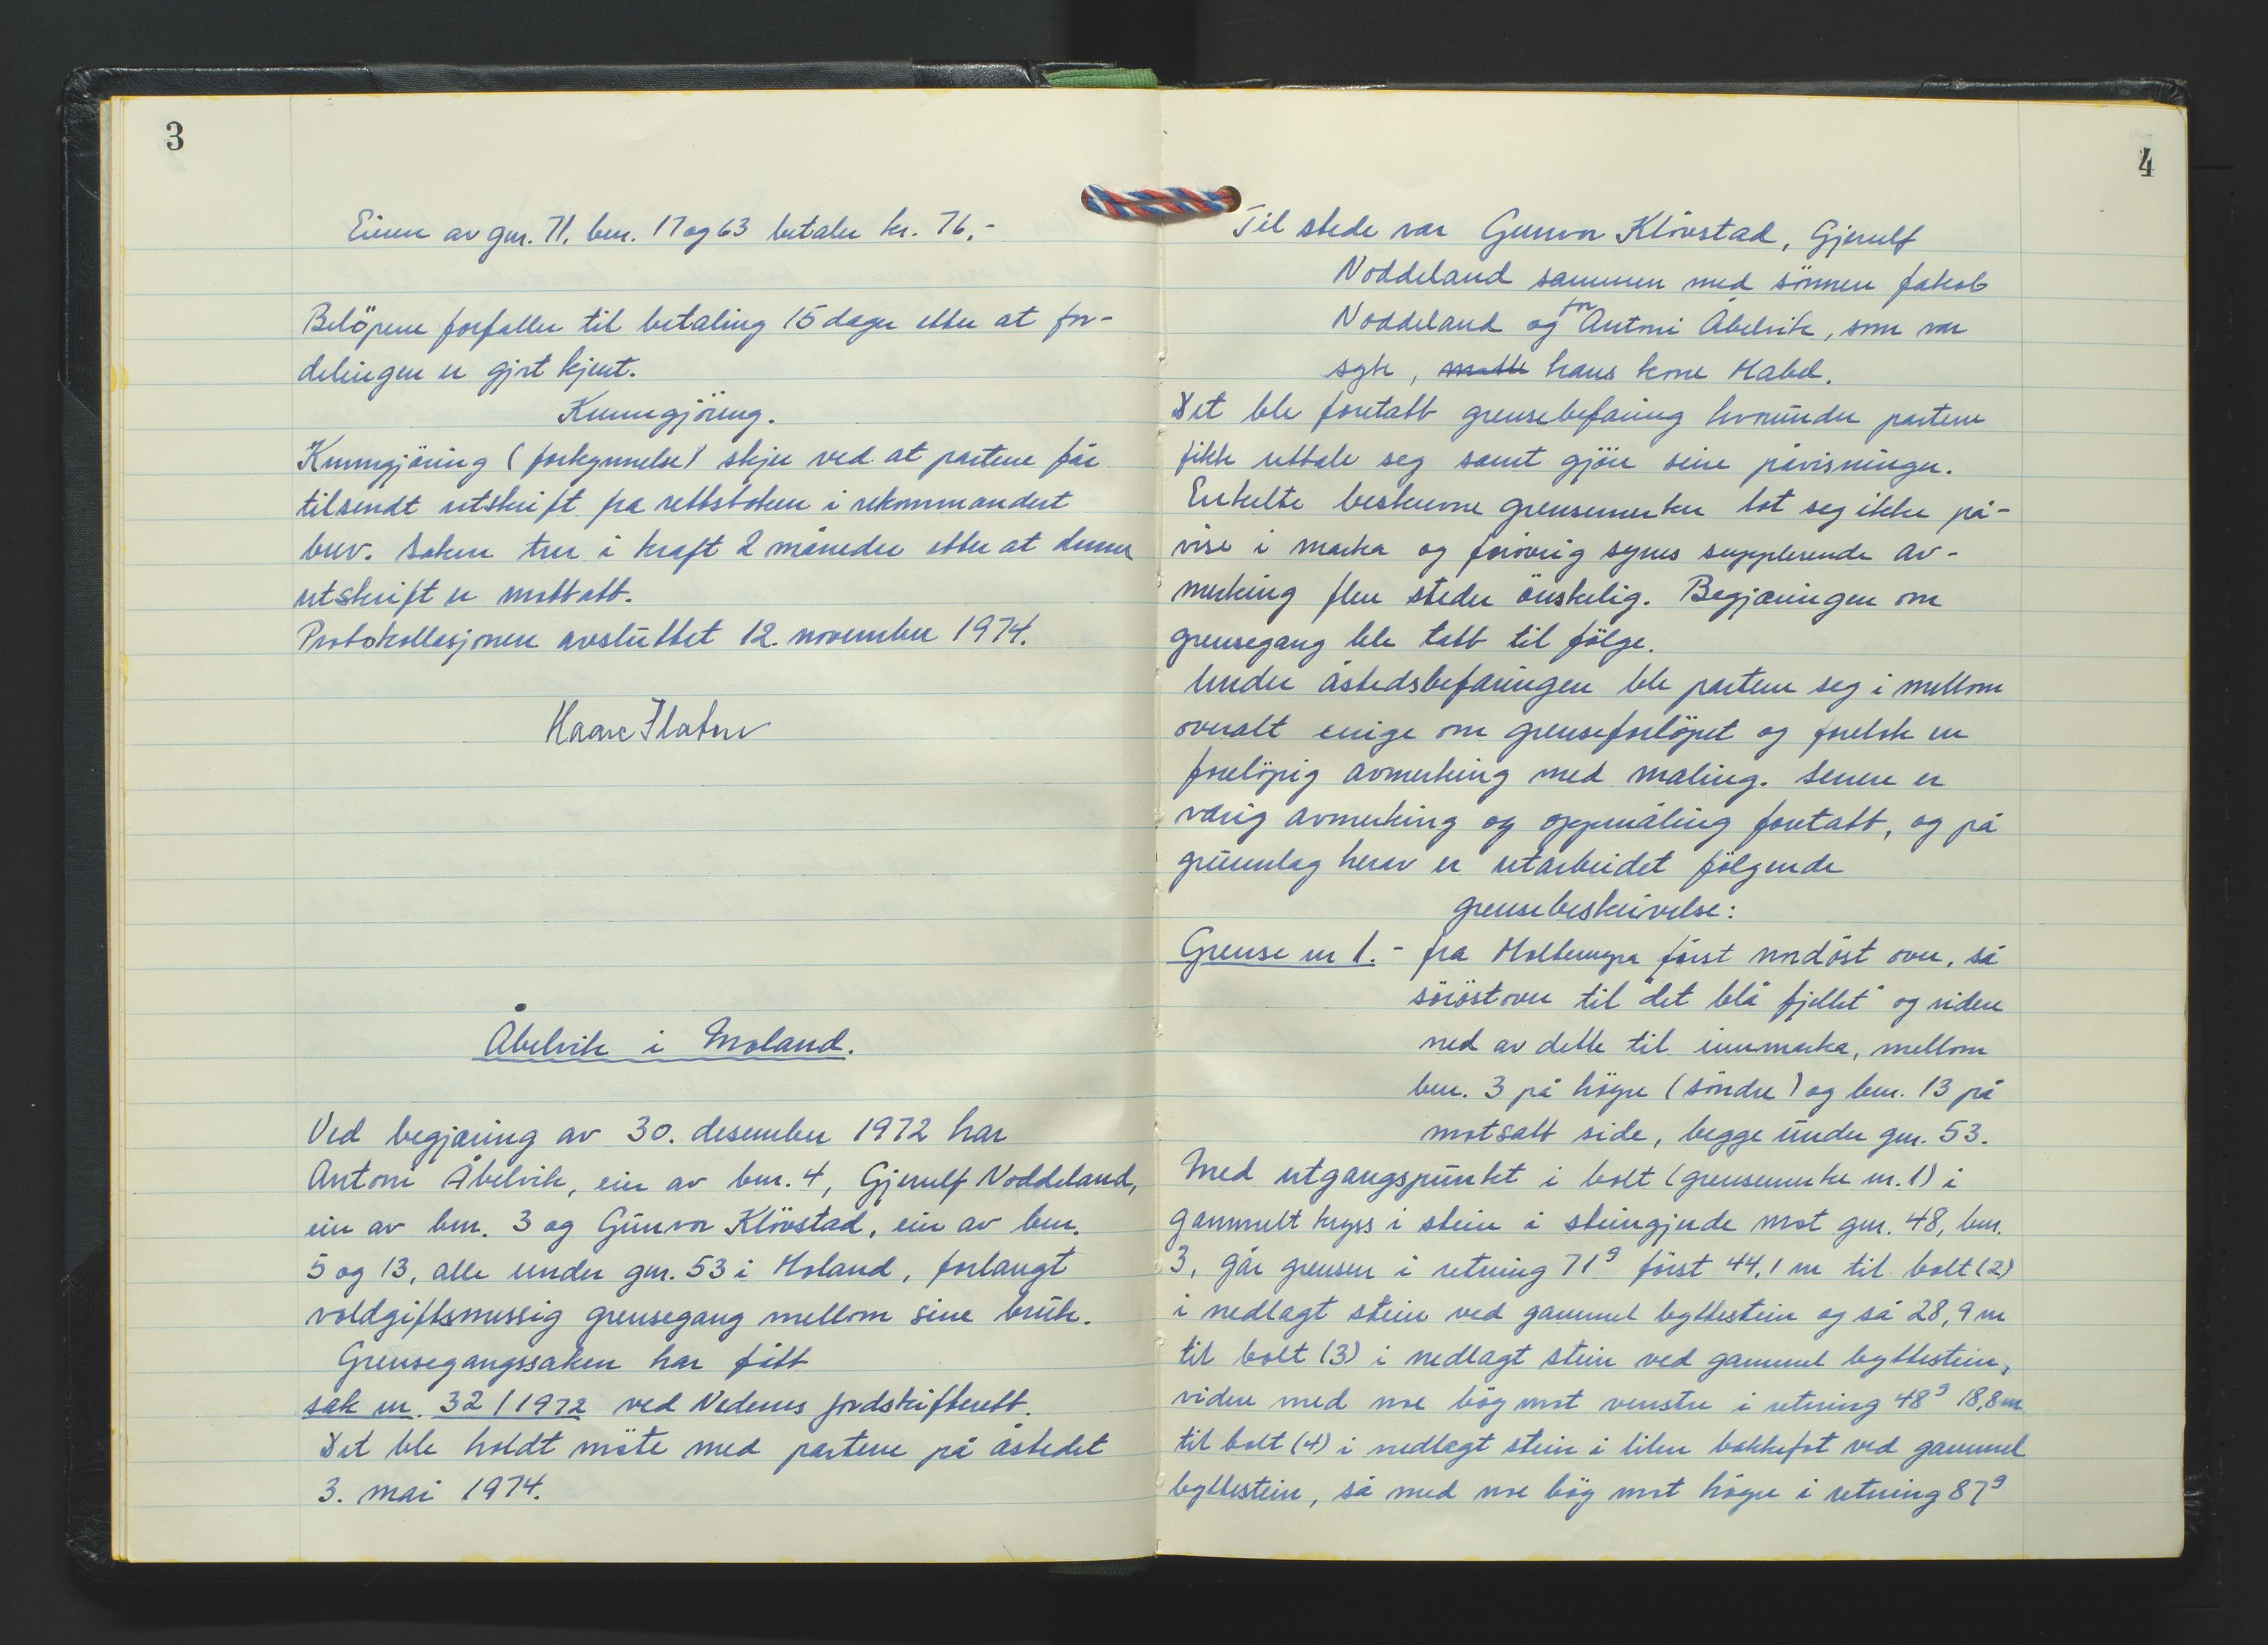 3
Eieren av gnr. 71, bnr. 17 og 63 betaler kr. 76,-
Belöpene forfaller til betaling 15 dager etter at for-
delingen er gjort kjent.
Kunngjöring.
Kunngjöring (forkynnelse) skjer ved at partene får
tilsendt utskrift fra rettsboken i rekommandert
brev. Saken trer i kraft 2 måneder etter at denne
utskrift er mottatt.
Protokollasjonen avsluttet 12. november 1974.
Haare Flaten
Åbelvik i Moland.
Ved begjæring av 30. desember 1972 har
Antoni Åbelvik, eier av bnr. 4, Gjerulf Noddeland,
eier av bnr. 3 og Gunvor Klövstad, eier av bnr.
5 og 13, alle under gnr. 53 i Moland, forlangt
voldgiftsmessig grensegang mellom sine bruk.
Grensegangssaken har fått
sak nr. 32/1972 ved Nedenes jordskifterett.
Det ble holdt möte med partene på åstedet
3. mai 1974.
4
Til stede var Gunvor Klövstad, Gjerulf
Noddeland sammen med sönnen Jakob
Noddeland og for Antoni Åbelvik, som var
syk, møtte hans kone Mabel.
Det ble foretatt grensebefaring hvorunder partene
fikk uttale seg samt gjöre sine påvisninger.
Enkelte beskrevne grensemerker lot seg ikke på-
vise i marka og forövrig synes supplerende av-
merking flere steder önskelig. Begjæringen om
grensegang ble tatt til fölge.
Under åstedsbefaringen ble partene seg i mellom
overalt enige om grenseforlöpet og foretok en
forelöpig avmerking med maling. Senere er
varig avmerking og oppmåling foretatt, og på
grunnlag herav er utarbeidet fölgende
grensebeskrivelse:
Grense nr 1. - fra Moltemyra först nordöst over, så
söröstover til "det blå fjellet" og videre
ned av dette til innmarka, mellom
bnr. 3 på högre (söndre) og bnr. 13 på
motsatt side, begge under gnr. 53.
Med utgangspunkt i bolt (grensemerke nr. 1) i
gammelt kryss i stein i steingjerde mot gnr. 48, bnr.
3, går grensen i retning 71ᵍ först 44,1 m til bolt (2)
i nedlagt stein ved gammel byttestein og så 28,9 m
til bolt (3) i nedlagt stein ved gammel byttestein,
videre med noe bög mot venstre i retning 48ᵍ 18,8 m
til bolt (4) i nedlagt stein i liten bakkefot ved gammel
byttestein, så med noe bög mot högre i retning 87ᵍ